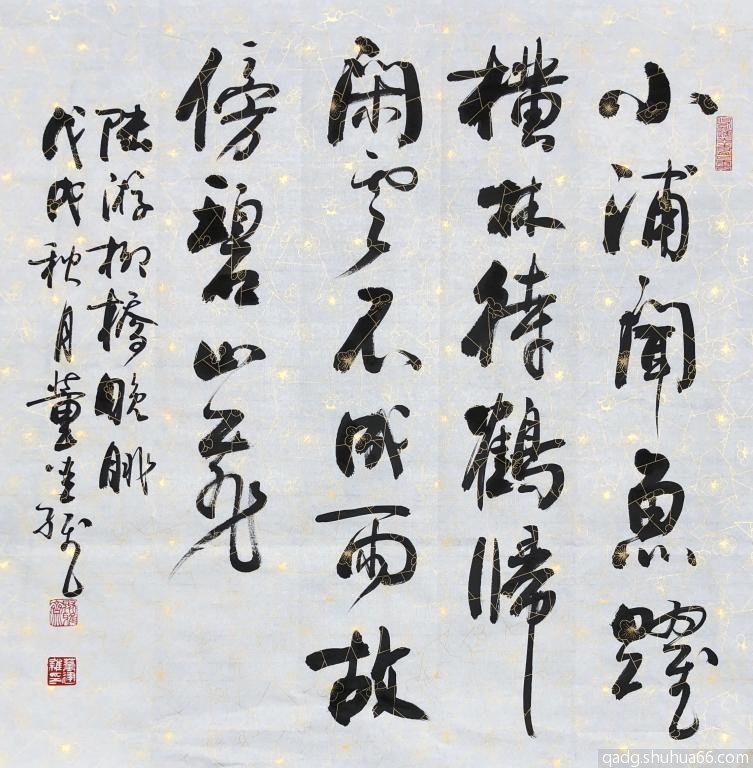 小浦聞魚躍
橫林待鶴歸
閑雲不成雨故
傍碧山飛
陸游柳橋晚眺
戊戌秋月董
qadg.shuhua66.com